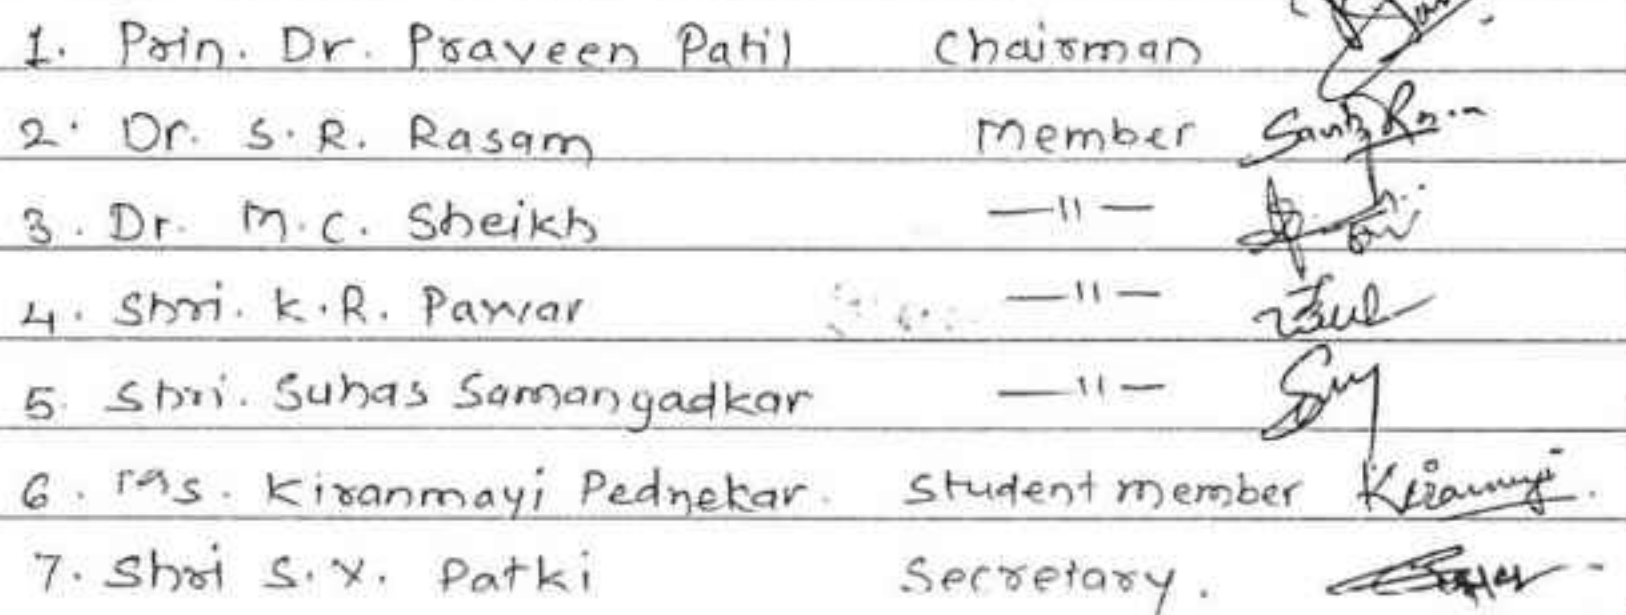 1. Prin. Dr. Praveen Patil Chairman
2. Dr. S. R. Rasam Member
3. Dr. M. C. Sheikh —11—
4. Shri. K. R. Pawar —11—
5. Shri. Suhas Samangadkar —11—
6. Ms. Kiranmayi Pednekar. Student member Kiranmayi.
7. Shri S. Y. Patki Secretary.